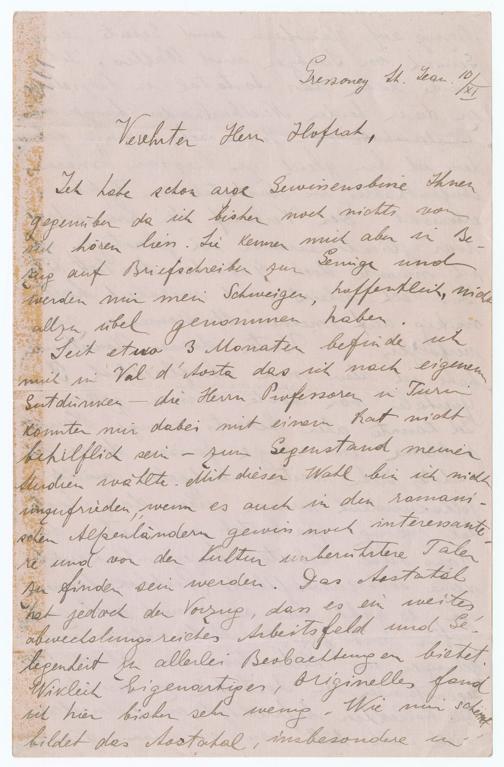 Gressoney St. Jean. 10/XI
Verehrter Herr Hofrat,
Ich habe schon arge Gewissensbisse Ihnen
gegenüber da ich bisher noch nichts von
mir hören liess. Sie kennen mich aber in Be-
zug auf Briefschreiben zur Genüge und
werden mir mein Schweigen, hoffentlich, nicht
allzu übel genommen haben.
Seit etwa 3 Monaten befinde ich
mich in Val d'Aosta das ich nach eigenem
Gutdünken – die Herrn Professoren in Turin
konnten mir dabei mit einem Rat nicht
behilflich sein – zum Gegenstand meiner
Studien wählte. Mit dieser Wahl bin ich nicht
unzufrieden, wenn es auch in den romani-
schen Alpenländern gewiss noch interessante-
re und von der Kultur unberührtere Täler
zu finden sein werden. Das Aostatal
hat jedoch den Vorzug, dass es ein weites,
abwechslungsreiches Arbeitsfeld und Ge-
legenheit zu allerlei Beobachtungen bietet.
Wirklich Eigenartiges, Originelles fand
ich hier bisher sehr wenig. Wie mir scheint
bildet das Aostatal, insbesondere in